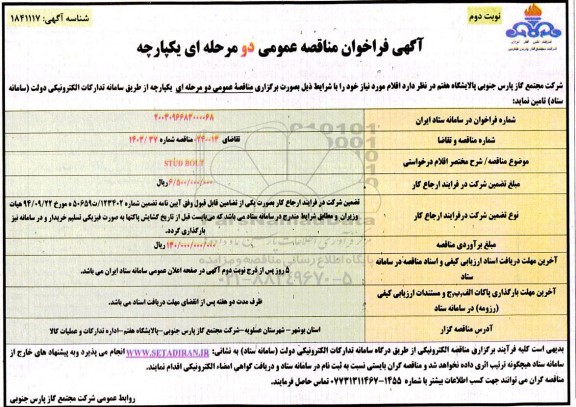 نوبت دوم
شناسه آگهی: ۱۸۴۱۱۱۷
شرکت ملی گاز ایران
شرکت مجتمع گاز پارس جنوبی
آگهی فراخوان مناقصه عمومی دو مرحله ای یکپارچه
شرکت مجتمع گاز پارس جنوبی پالایشگاه هفتم در نظر دارد اقلام مورد نیاز خود را با شرایط ذیل بصورت برگزاری مناقصهٔ عمومی دو مرحله ای یکپارچه از طریق سامانه تدارکات الکترونیکی دولت (سامانه
ستاد) تامین نماید:
شماره فراخوان در سامانه ستاد ایران
۲۰۰۳۰۹۶۶۸۳۰۰۰۰۶۸
شماره مناقصه و تقاضا
تقاضای ۰۲۴۰۰۱۳ مناقصه شماره ۳۷ /۱۴۰۳
موضوع مناقصه/ شرح مختصر اقلام درخواستی
STUD BOLT
مبلغ تضمین شرکت در فرایند ارجاع کار
۶/۵۰۰/۰۰۰/۰۰۰ریال
نوع تضمین شرکت در فرایند ارجاع کار
تضمین شرکت در فرایند ارجاع کار بصورت یکی از تضامین قابل قبول وفق آیین نامه تضمین شماره ۱۲۳۴۰۲/ت۵۰۶۵۹ه مورخ ۹۴/۰۹/۲۲ هیات
وزیران و مطابق شرایط مندرج در سامانه ستاد می باشد که می‌بایست قبل از تاریخ گشایش پاکتها به صورت فیزیکی تسلیم خریدار و در سامانه نیز
بارگذاری گردد.
مبلغ برآوردی مناقصه
۱۳۰/۰۰۰/۰۰۰/۰۰۰ ریال
آخرین مهلت دریافت اسناد ارزیابی کیفی و اسناد مناقصه در سامانه
ستاد
۵ روز پس از فرج نوبت دوم آگهی در صفحه اعلان عمومی سامانه ستاد ایران می باشد.
آخرین مهلت بارگذاری پاکات الف،ب،ج و مستندات ارزیابی کیفی
(رزومه) در سامانه ستاد
ظرف مدت دو هفته پس از انقضای مهلت دریافت اسناد می باشد.
آدرس مناقصه گزار
استان بوشهر - شهرستان عسلویه –شرکت مجتمع گاز پارس جنوبی –پالایشگاه هفتم –اداره تدارکات و عملیات کالا
پایگاه اطلاع رسانی مناقصه و مزایده
۰۲۱-۸۸۳۴۹۶۷۰-۵
بدیهی است کلیه فرآیند برگزاری مناقصه الکترونیکی از طریق درگاه سامانه تدارکات الکترونیکی دولت (سامانه ستاد) به نشانی: WWW.SETADIRAN.IR انجام می پذیرد وبه پیشنهاد های خارج از
سامانه ستاد هیچگونه ترتیب اثری داده نخواهد شد و مناقصه گران بایستی نسبت به ثبت نام در سامانه ستاد و دریافت گواهی امضاء الکترونیکی اقدام نمایند.
مناقصه گران می توانند جهت کسب اطلاعات بیشتر با شماره ۱۴۵۵-۰۷۷۳۱۳۱۱۴۶۷ تماس حاصل فرمایند.
روابط عمومی شرکت مجتمع گاز پارس جنوبی